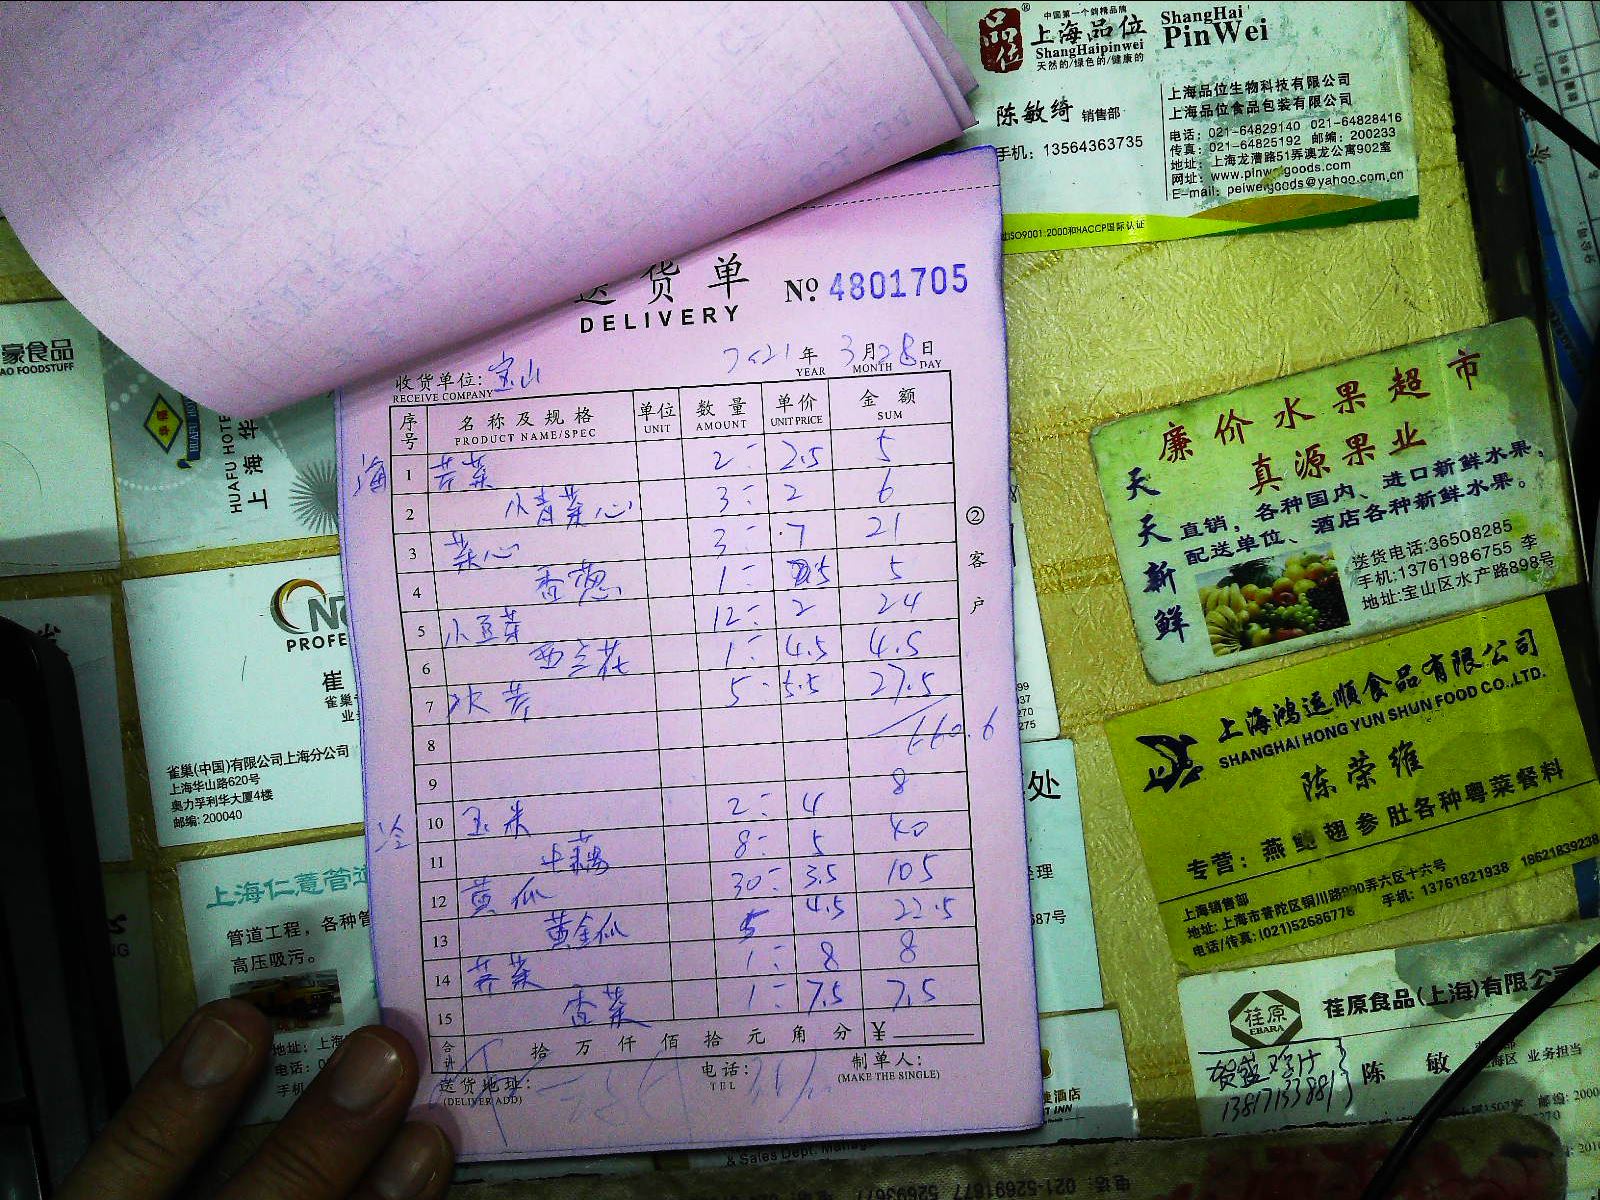 送货单
DELIVERY
№ 4801705
收货单位: 宝山
RECEIVE COMPANY
年 3月28日
YEAR MONTH DAY
序号 名称及规格 单位 数量 单价 金额
PRODUCT NAME/SPEC UNIT AMOUNT UNIT PRICE SUM
海
1 芹菜 2 2.5 5
2 小青菜心 3 2 6
3 菜心 3 7 21
4 香葱 1 5
5 小豆芽 12 2 24
6 西兰花 1 4.5 4.5
7 5 5.5 27.5
8 660.6
9
冷
10 玉米 2 4 8
11 中藕 8 5 40
12 黄瓜 30 3.5 105
13 黄金瓜 5 4.5 22.5
14 荠菜 1 8 8
15 香菜 1 7.5 7.5
合计 拾万仟佰拾元角分 ¥
送货地址:
(DELIVER ADD)
电话:
TEL
制单人:
(MAKE THE SINGLE)
②客户
品位
中国第一个斜精品牌
上海品位
ShangHaipinwei
天然的/绿色的/健康的
ShangHai
PinWei
陈敏绮 销售部
手机: 13564363735
上海品位生物科技有限公司
上海品位食品包装有限公司
电话: 021-64829140 021-64828416
传真: 021-64825192 邮编: 200233
地址: 上海龙漕路51弄澳龙公寓902室
网址: www.pinweigoods.com
E-mail: peiweigoods@yahoo.com.cn
ISO9001:2000和HACCP国际认证
廉价水果超市
真源果业
天天新鲜
直销,各种国内、进口新鲜水果,
配送单位、酒店各种新鲜水果。
送货电话:36508285
手机:13761986755 李
地址:宝山区水产路898号
上海鸿运顺食品有限公司
SHANGHAI HONG YUN SHUN FOOD CO.,LTD.
陈荣维
专营: 燕鲍翅参肚各种粤菜餐料
上海销售部
地址: 上海市普陀区铜川路890弄六区十六号
电话/传真: (021)52686778 手机: 13761821938 18621839238
荏原
EBARA
荏原食品(上海)有限公司
陈敏
业务担当
13817133881
豪食品
AO FOODSTUFF
HUAFU HOTE
上海华
PROFE
崔
雀巢
业
雀巢(中国)有限公司上海分公司
上海华山路620号
奥力孚利华大厦4楼
邮编: 200040
上海仁薏管道
管道工程, 各种管
高压吸污。
地址: 上海
电话: 0
手机
处
经理
687号
捷酒店
INN
& Sales Dept. Manag